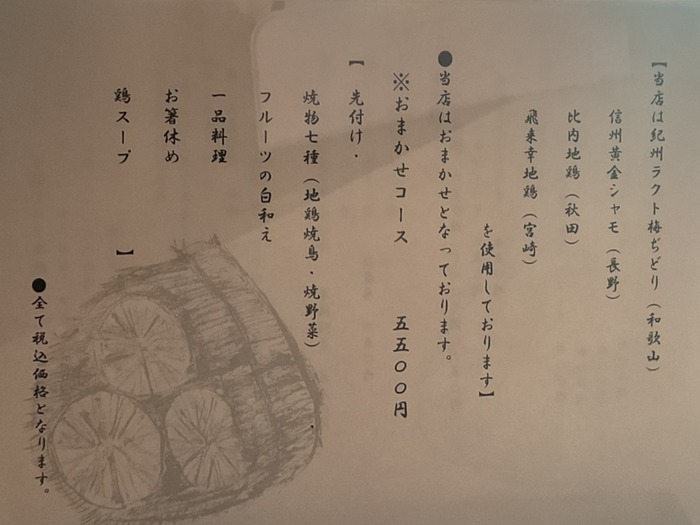 【当店は紀州ラクト梅ぢどり（和歌山）
信州黄金シャモ（長野）
比内地鶏（秋田）
飛来幸地鶏（宮崎）
を使用しております】
●当店はおまかせとなっております。
※おまかせコース　五五〇〇円
【先付け・
焼物七種（地鶏焼鳥・焼野菜）
フルーツの白和え
一品料理
お箸休め
鶏スープ】
●全て税込価格となります。